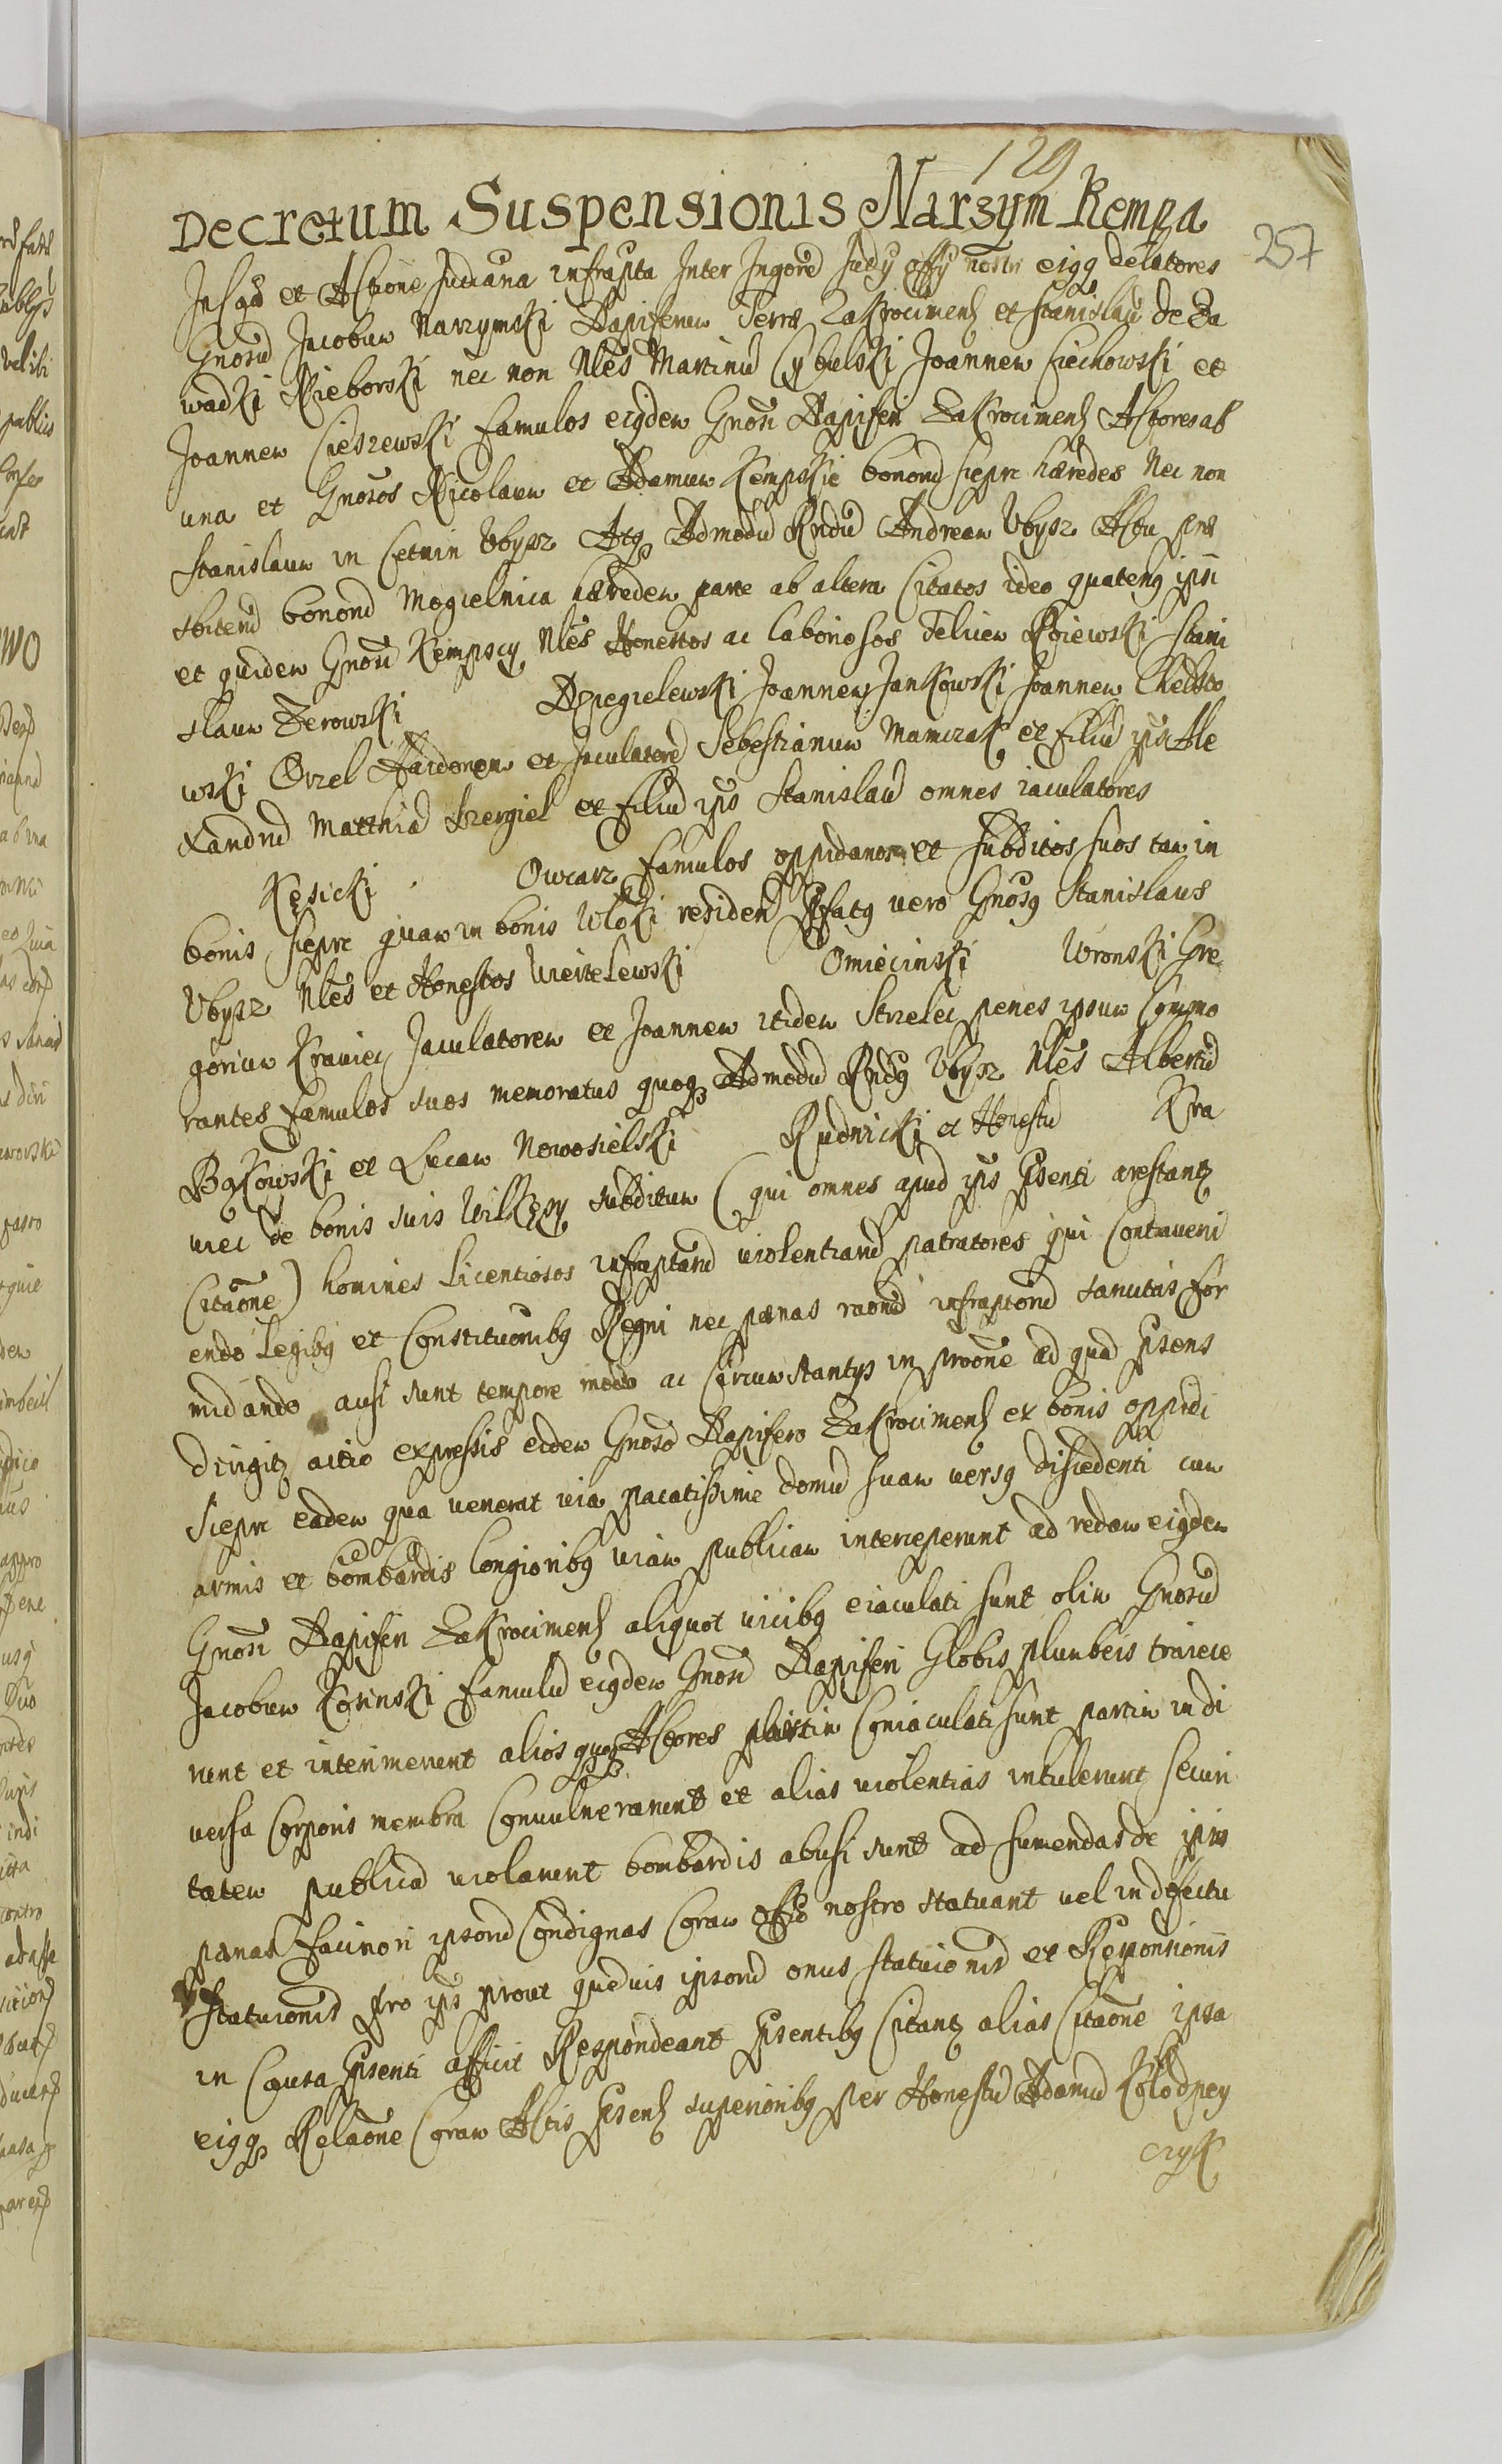 129
257
Decretum Suspensionis Narzym Kempa
In Causa et Actione Judiciaria infrapta Inter Ingord Judy offy nostri eigq delatores
Gnosu Jacobum Narzymski Dapiferum Terræ Zakrocimens et Stanislau de Za
wadki Nieborski nec non Nles Martinu Cybulski Joannem Ciechowski et
Joannem Cieszewski Famulos eigdem Gnosi Dapiferi Zakrocimens Actores ab
una et Gnosos Nicolaum et Adamum Kempskie bonorum Siepre hæredes Nec non
Stanislaum in Cetnin Ubysz Atq Admodu Rndu Andream Ubysz
bonorum Mogielnica hæredem parte ab altera Citatos ideo quatenq ipsi
et quidem Gnosi Kempscy Nles Honestos ac laboriosos Felicem Roiewski Stani
slaum Zerowski Dziegielewski Joannem Jankowski Joannem Chelsto
wski Orzel Haidonem et Jaculatore Sebestianum Mamczak et Filiu ips Ale
xandru Matthia Szergiel et Filiu ips Stanislau omnes iaculatores
Kęsicki Owcarz Famulos oppidanos et Subditos suos tam in
bonis Siepre quam in bonis Wloki residen Pfatq vero Gnosq Stanislaus
Ubysz Nles et Honestos Wieitelewski Omiecinski Wronski Gre
gorium Krawiec Jaculatorem et Joannem itidem Strzelec penes ipsum Commo
rantes Famulos suos memoratus quoq Admodu Rndq Ubysz Nles Albertu
Bąkowski et Lucam Nowosielski Rudnicki et Honestu Kra
wiec de bonis suis Wilkęsy subditum (qui omnes apud ips Psenti arestantq
Citaone) homines Licentiosos infraptaru violentiaru patratores qui Contraveni
endo Legibq et Constituonibq Regni nec pænas raonu infraptoru sancitas for
midando ausi sunt tempore modo ac Circumstantys in proone ad qua Psens
dirigitq actio expressis eidem Gnoso Dapifero Zakrocimens ex bonis oppidi
Siepre eadem qua venerat via pacatissime domu suam versq discedenti cum
armis et bombardis longioribq viam publicam interceperunt ad redam eigdem
Gnosi Dapiferi Zakrocimens aliquot vicibq eiaculati sunt olim Gnosu
Jacobum Kosinski Famulu eigdem Gnosi Dapiferi Globis plumbeis traiece
runt et interimerunt alios quoq Actores partim Coniaculati sunt partim in di
versa Corporis membra Convulneraverunt et alias violentias intulerunt securi
tatem publica violarunt bombardis abusi sunt ad sumendas de ipsis
pænas Facinori ipsoru Condignas Coram Offo nostro statuant vel in defectu
Statuionis pro ips prout quemvis ipsoru onus statuionis et Responsionis
in Causa Psenti afficit Respondeant Psentibq Citantq alias Citaone ipsa
eigq Relaone Coram Actis Psens superioribq per Honestu Adamu Kolodzey
czyk